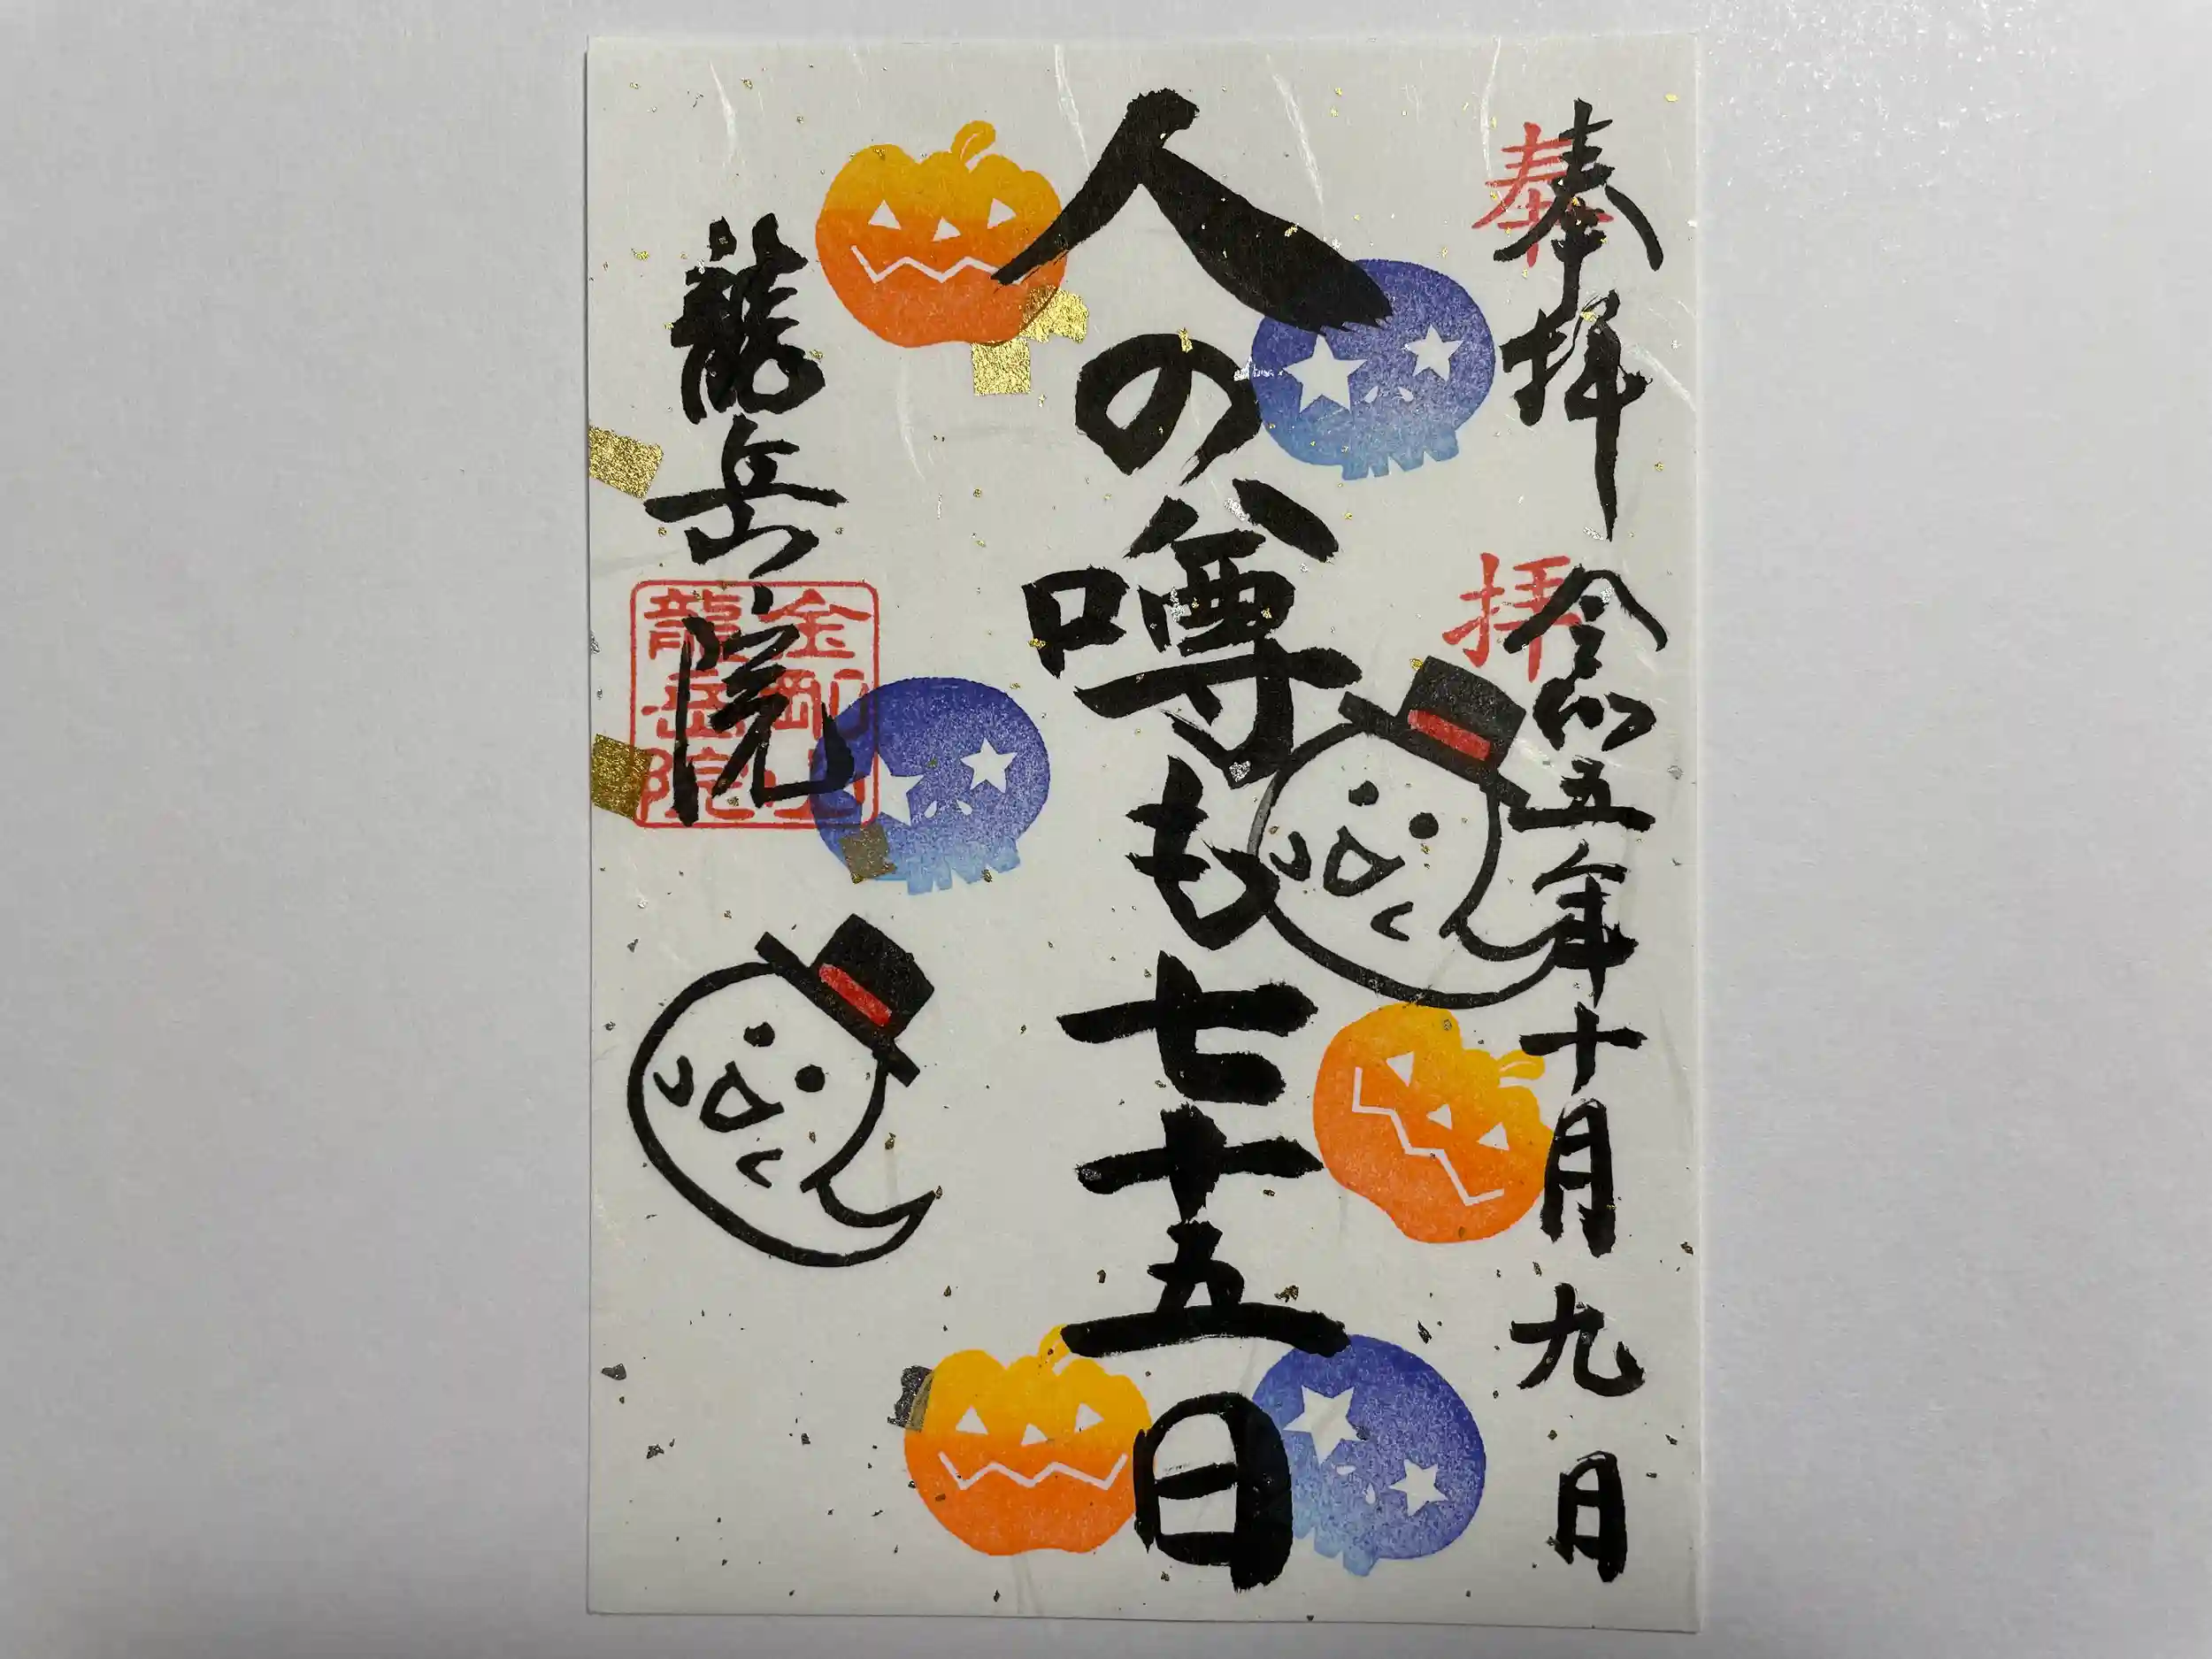 奉拝 令和五年十月九日
奉拝
人の噂も七十五日
龍岳院
金剛山
龍岳院